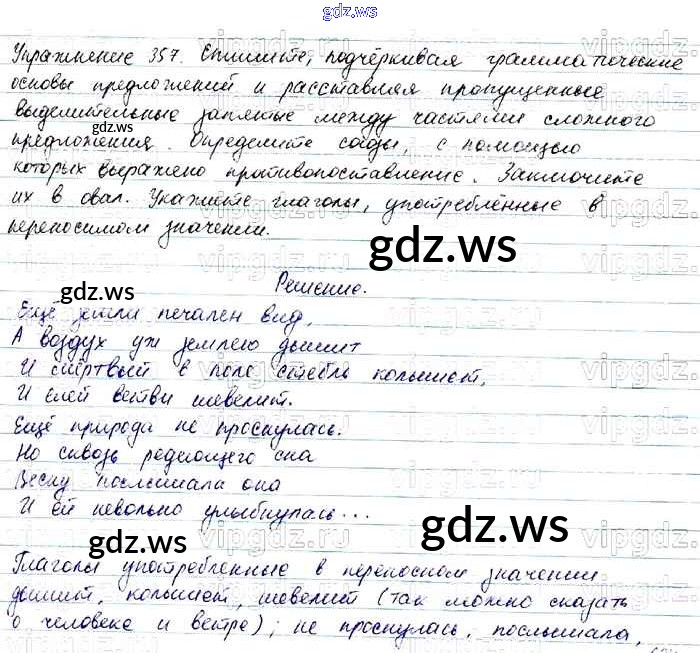 gdz.ws
Упражнение 357. Спишите, подчёркивая грамматические
основы предложений и расставляя пропущенные
выделительные запятые между частями сложного
gdz.ws
предложения. Определите союзы, с помощью
которых выражено противопоставление. Заключите
их в овал. Укажите глаголы, употреблённые в
переносимом значении.
gdz.ws
Решение.
gdz.ws
Ещё земли печален вид,
А воздух уж землею дышит
И мёртвый в поле стебль колышет,
И елей ветви шевелит.
Ещё природа не проснулась.
gdz.ws
Но сквозь редеющего сна
Весну послышала она
И ей невольно улыбнулась...
gdz.ws
Глаголы употребленные в переносном значении
дышит, колышет, шевелит (так можно сказать
о человеке и ветре); не проснулась, послышала,
gdz.ws